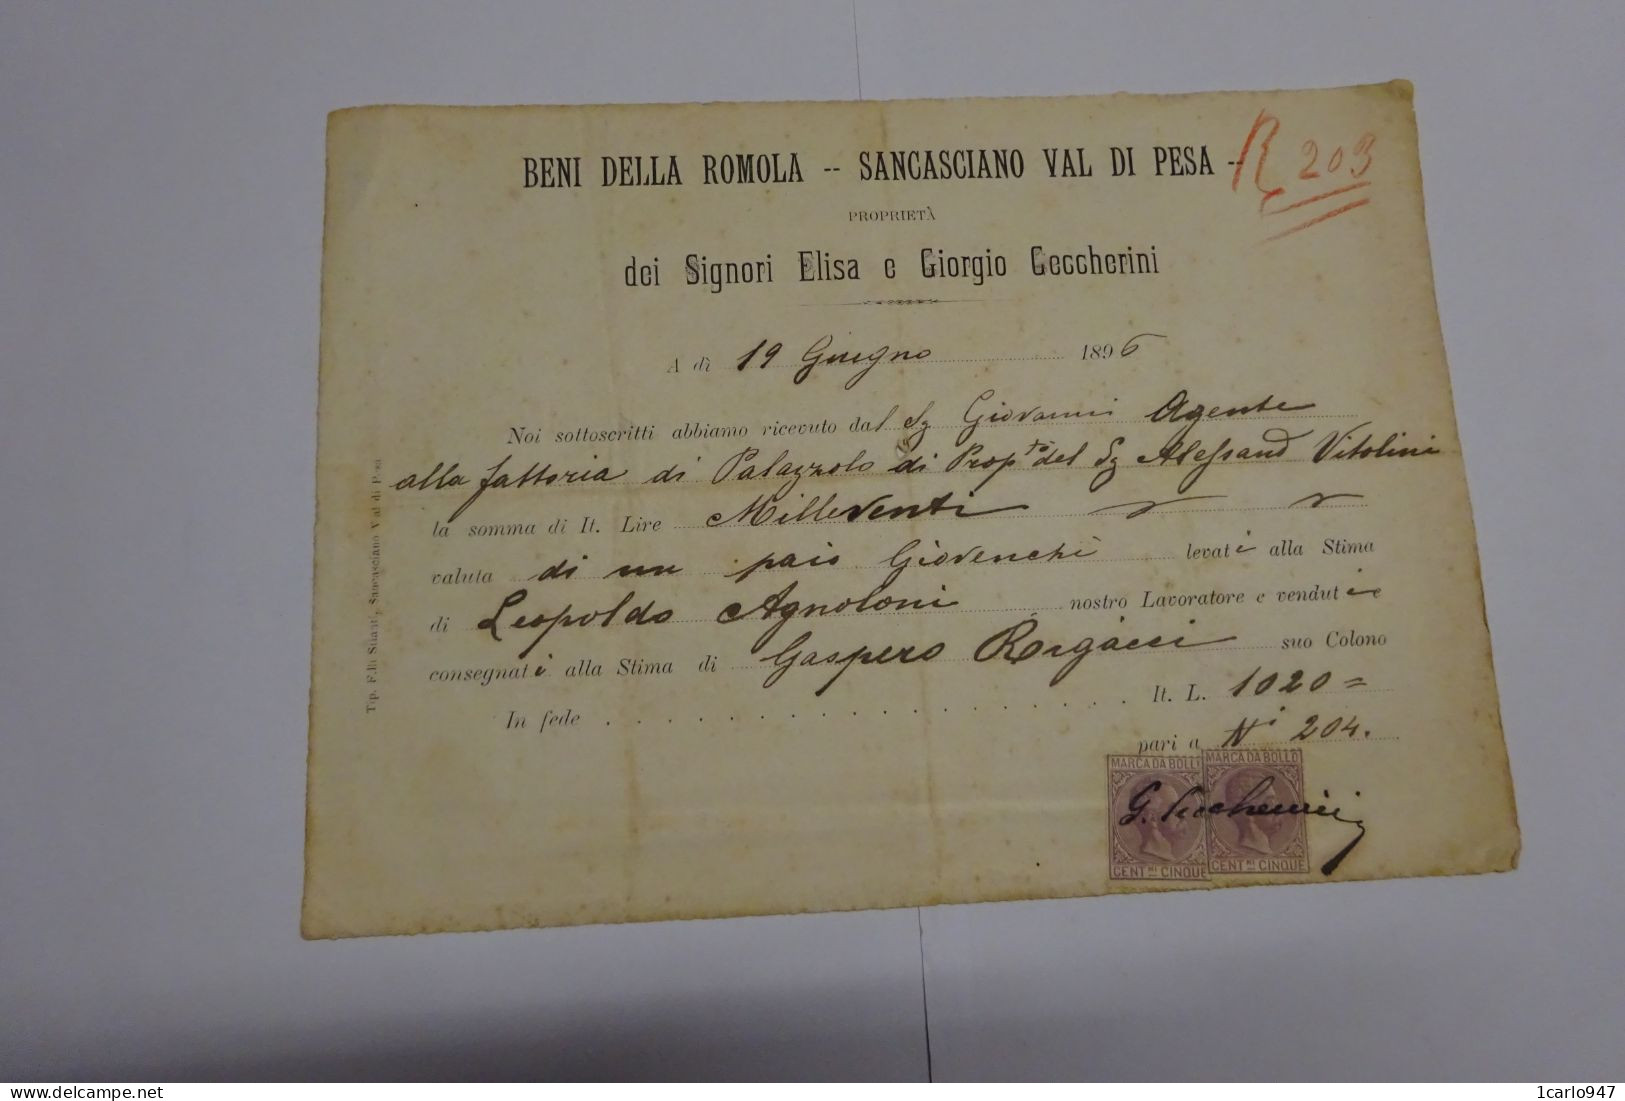 BENI DELLA ROMOLA -- SANCASCIANO VAL DI PESA --
R 203
PROPRIETÀ
dei Signori Elisa e Giorgio Ceccherini
A dì 19 Giugno 1896
Noi sottoscritti abbiamo ricevuto dal Sg Giovanni Agente
alla fattoria di Palazzolo di Prop.tà del Sg Alessand Vitolini
la somma di It. Lire Milleventi
valuta di un paio Giovenchi levati alla Stima
di Leopoldo Agnoloni nostro Lavoratore e venduti e
consegnati alla Stima di Gaspero suo Colono
In fede . . . . . . . . . . . . . . . It. L. 1020=
pari a Ni 204.
MARCA DA BOLLO MARCA DA BOLLO
G. Ceccherini
CENT.MI CINQUE CENT.MI CINQUE
Tip. F.lli Stianti, Sancasciano Val di Pesa
delcampe.net
1carlo947